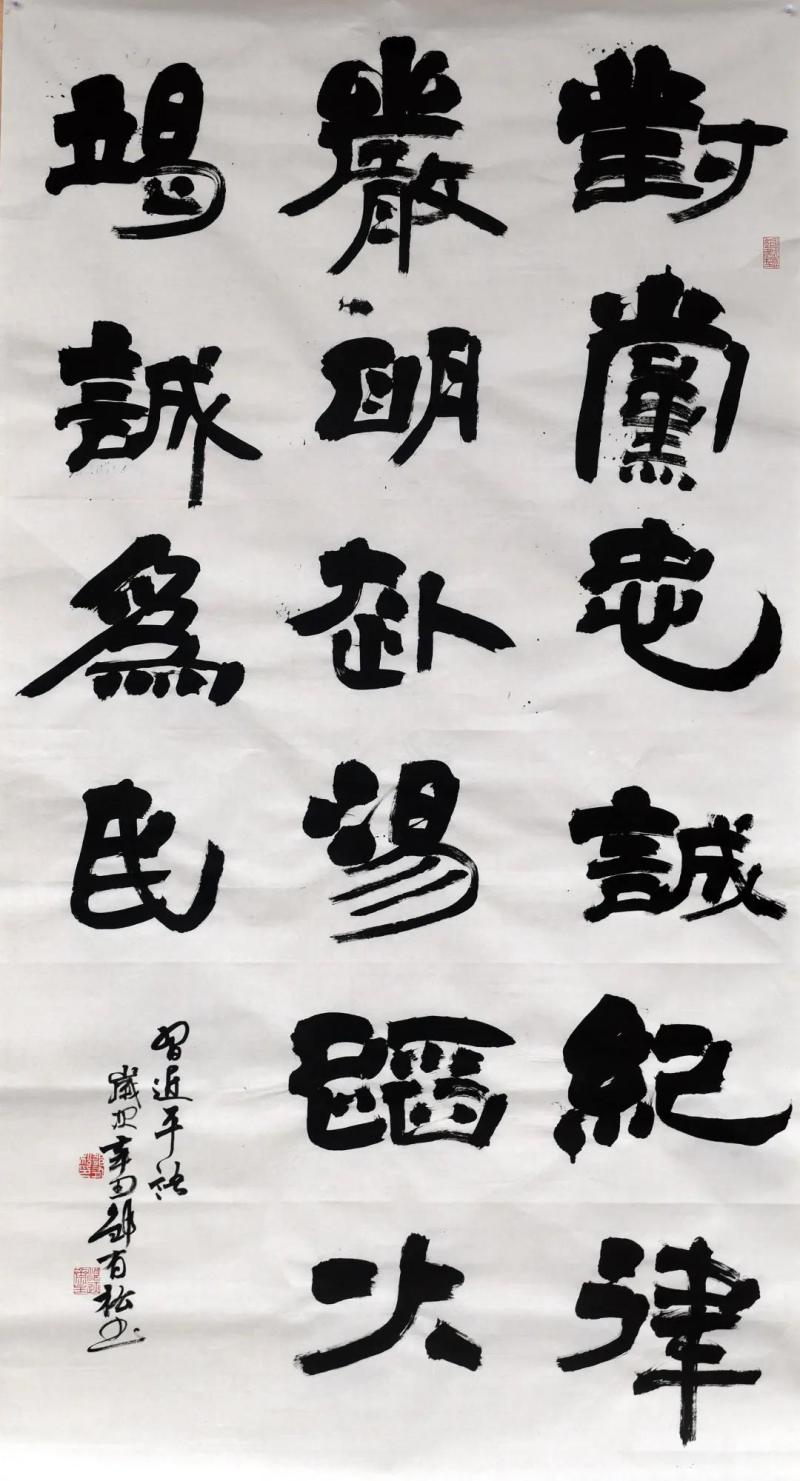 對黨忠誠紀律
嚴明赴湯蹈火
竭誠爲民
習近平語
歲次辛丑鄒百松書